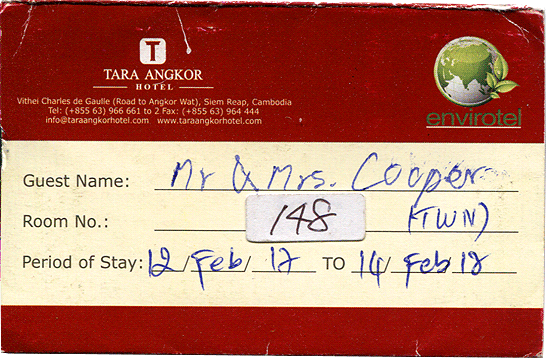 T
TARA ANGKOR
HOTEL
Vithei Charles de Gaulle (Road to Angkor Wat), Siem Reap, Cambodia
Tel: (+855 63) 966 661 to 2 Fax: (+855 63) 964 444
info@taraangkorhotel.com www.taraangkorhotel.com
envirotel
Guest Name: Mr & Mrs. Cooper
Room No.: 148 (TWN)
Period of Stay: 12/Feb/17 TO 14/Feb 17